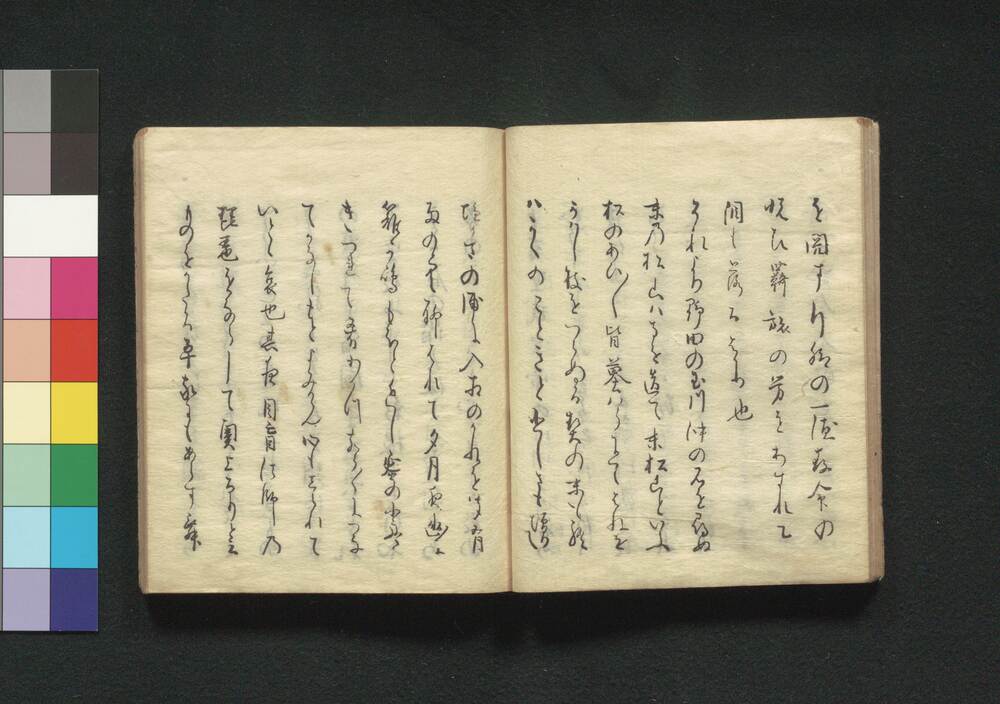 を閲す行脚の一徳存命の
悦ひ羇旅の労をわすれて
泪も落るはかり也
それより野田の玉川沖の石を尋ぬ
末乃松山ハ寺を造て末松山といふ
松のあひ〳〵皆墓ハらにてはねを
かはし枝をつらぬる契の末も終
ハかくのこときと悲しさも増りて
塩かまの浦に入あひのかねを聞五月
雨の空聊はれて夕月夜幽に
籬か嶋もほと近し蜑の小舟こ
きつれて肴わかつ声〳〵につな
てかなしもとよみけん心もしられて
いとゝ哀也其夜目盲法師乃
琵琶をならして奥上るりと云
ものをかたる平家にもあらす舞